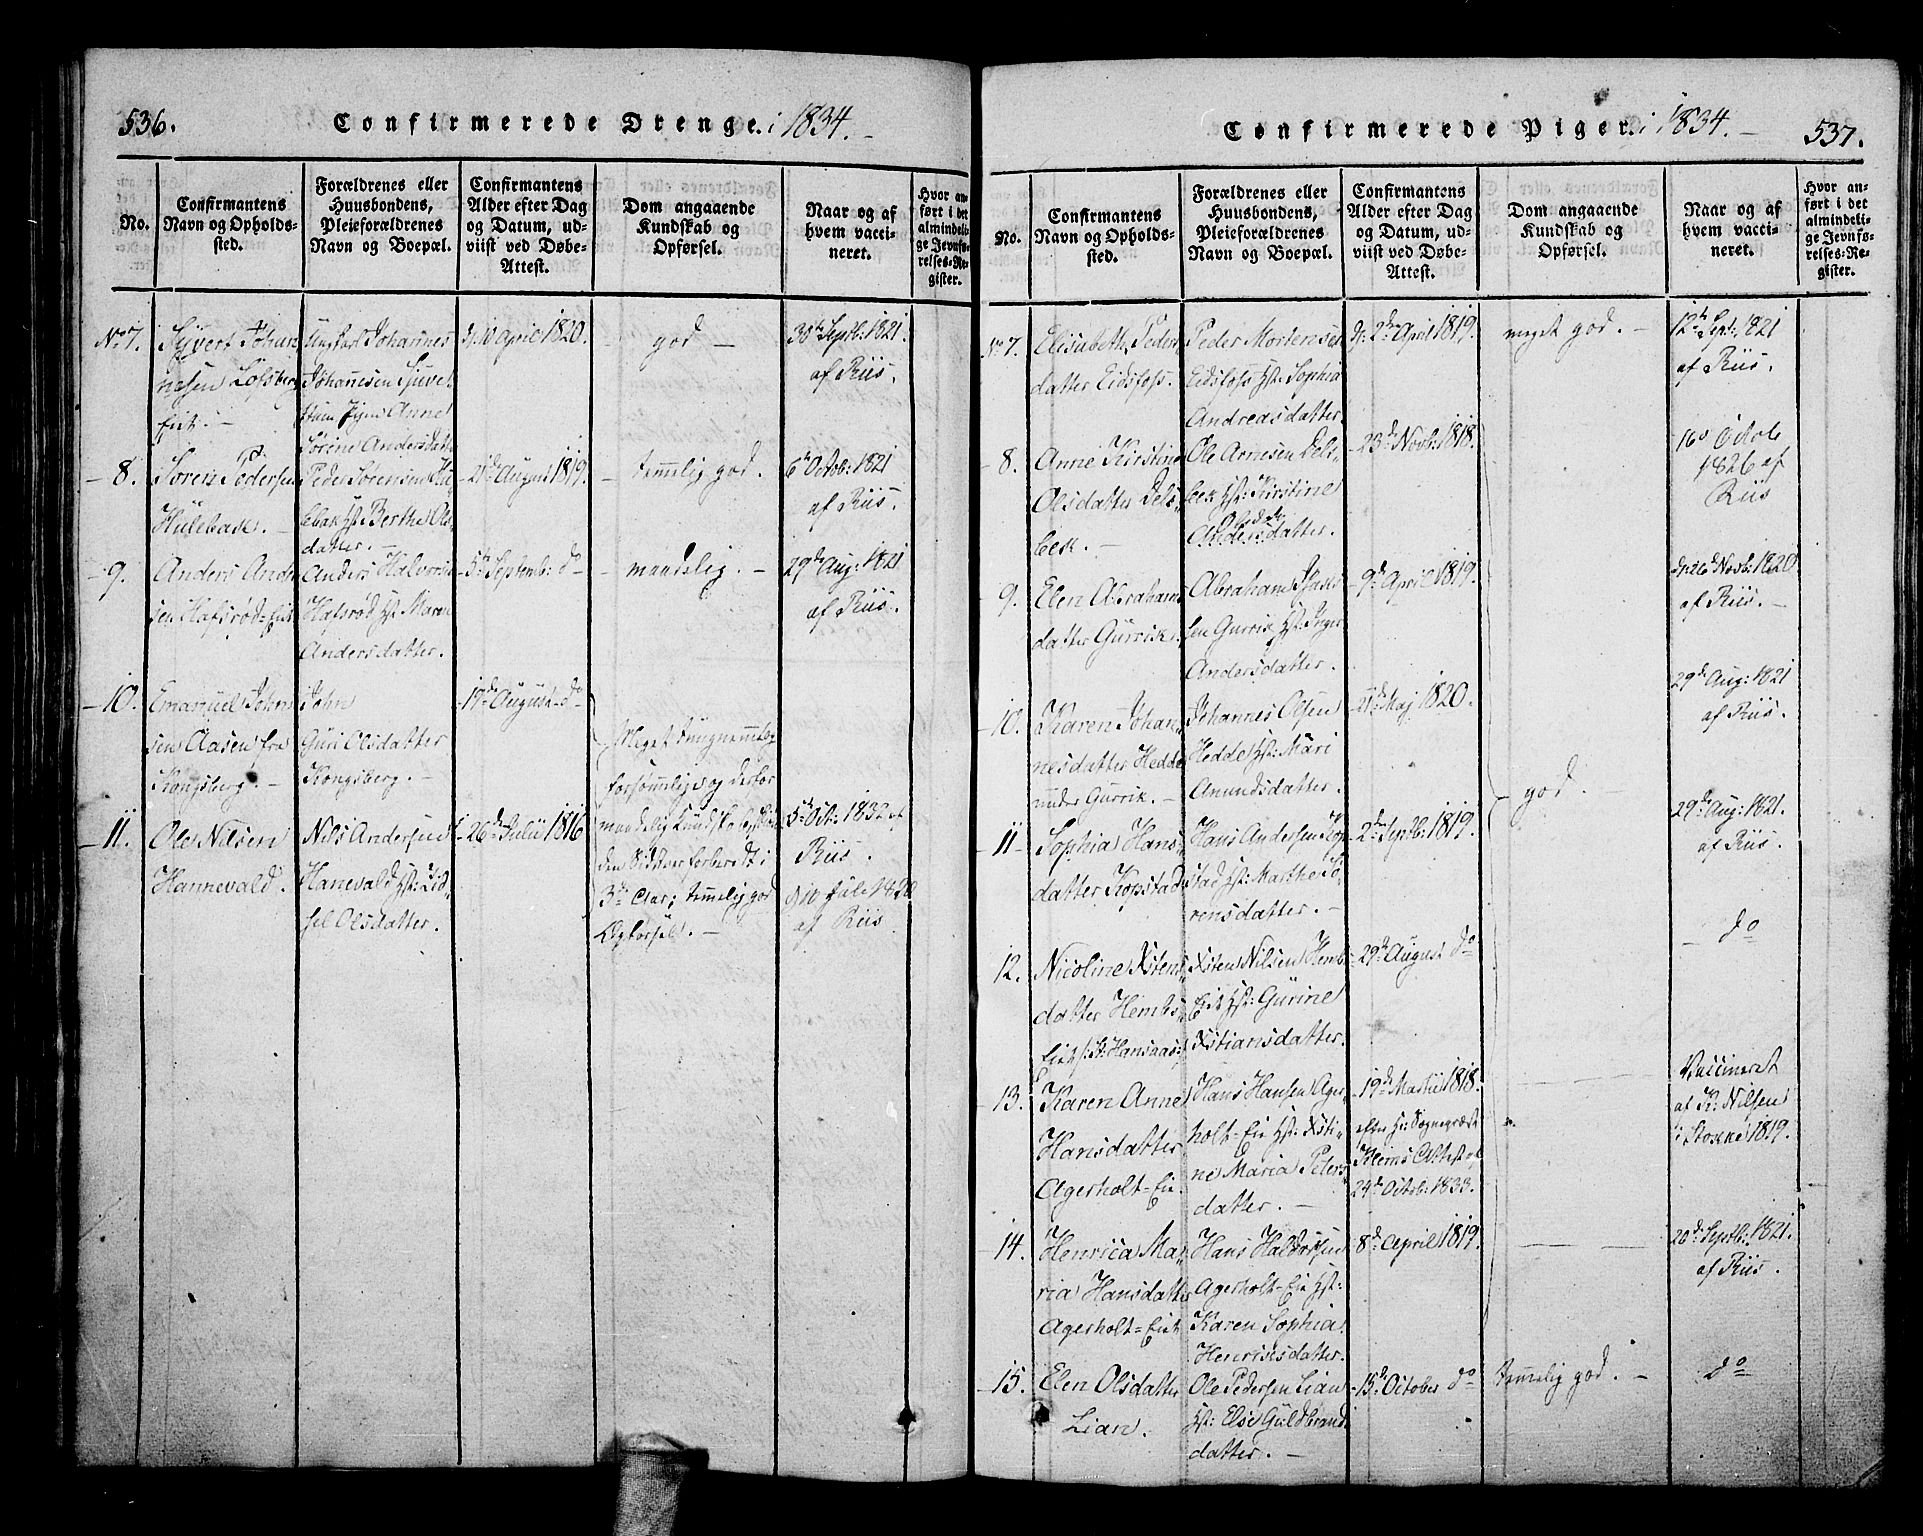 536.
Confirmerede Drenge. i 1834.
No.
Confirmantens
Navn og Opholds-
sted.
Forældrenes eller
Huusbondens,
Pleieforældrenes
Navn og Boepæl.
Confirmantens
Alder efter Dag
og Datum, ud-
viist ved Døbe-
Attest.
Dom angaaende
Kundskab og
Opførsel.
Naar og af
hvem vacci-
neret.
Hvor an-
ført i det
almindeli-
ge Jevnfø-
relses-Re-
gister.
No 7.
Syvert Johan
nesen
eiet.
Johannes
Johanesen
Anne
Sørine Andersdatt
10 April 1820.
god
30te Septb: 1821.
af Riis.
8.
Søren Pedersen
Hulebak.
Peder Sørensen Hu
lebak Hst: Berthe Ols
datter.
21de August 1819.
temmelig god.
6te Octob: 1821
af Riis.
9.
Anders Ander
sen Hafsrød-Eiet
Anders Halvors
Hafsrød Hst: Maren
Andersdatter.
5te Septemb: do
maadelig.
29de Aug: 1821
af Riis.
10.
Emanuel Johns
sen Aasen fra
Kongsberg.
John
Guri Olsdatter
Kongsberg.
19de August do
11.
Ole Nilsen
Hannevald.
Nils Andersen
Hanevald Hst: Sid
sel Olsdatter.
26de Julii 1816
Meget tungnemmelig
forsømmelig og derfor
maadelig Kundskab
forberedt i
3de Aar; temmelig god
Opførsel.
5te Oct: 1832 af
Riis.
af Riis
Confirmerede Piger. i 1834.
537.
No.
Confirmantens
Navn og Opholds-
sted.
Forældrenes eller
Huusbondens,
Pleieforældrenes
Navn og Boepæl.
Confirmantens
Alder efter Dag
og Datum, ud-
viist ved Døbe-
Attest.
Dom angaaende
Kundskab og
Opførsel.
Naar og af
hvem vacci-
neret.
Hvor an-
ført i det
almindeli-
ge Jevnfø-
relses-Re-
gister.
No 7.
Elisabeth Peders
datter Eidsfoss.
Peder Mortensen
Eidsfoss Hst: Sophia
Andreasdatter.
2den April 1819.
meget god.
12te Sept: 1821
af Riis.
8.
Anne Kirstine
Olsdatter Dels
bek.
Ole Arnesen Dels
bek Hst: Kirstine
Andersdatter.
23de Novb: 1818.
16de Octob
1826 af
Riis
9.
Elen Abrahams
datter Gurrik.
Abraham
sen Gurrik Hst: Inger
Andersdatter.
9de April 1819.
26de Novb: 1820
af Riis.
10.
Karen Johan
nesdatter Hedde
under Gurrik.
Johannes Olsen
Hedde Hst: Mari
Amundsdatter.
21de Maj 1820.
god.
29de Aug: 1821
af Riis.
11
Sophia Hans
datter Kopstad
Hans Andersen Kop
stad Hst: Marthe Sø
rensdatter.
2den Septb: 1819.
29de Aug: 1821
af Riis.
12.
Nicoline Xstens
datter Hembs
Eiet /: St: Hansaas :/
Xsten Nilsen Hemb
Eiet Hst: Gurine
Xstiansdatter.
29de August do
do
13.
Karen Anne
Hansdatter
Agerholt-Eie.
Hans Hansen Ager
holt-Eie Hst: Xsti
ne Maria Peters
datter.
19de Martii 1818.
efter Hr: Sognepræst
Klems Attest af
24de Octob: 1833.
Vaccineret
af K: Nilsen
i Stokke 1819.
14.
Henrica Ma
ria Hansdatter
Agerholt-Eiet
Hans Halvorsen
Agerholt-Eie Hst:
Karen Sophia
Henricsdatter.
8de April 1819.
20de Septb: 1821.
af Riis.
15.
Elen Olsdatter
Lian.
Ole Pedersen Lian
Hst: Else Guldbrand
datter.
15de October do
temmelig god.
do